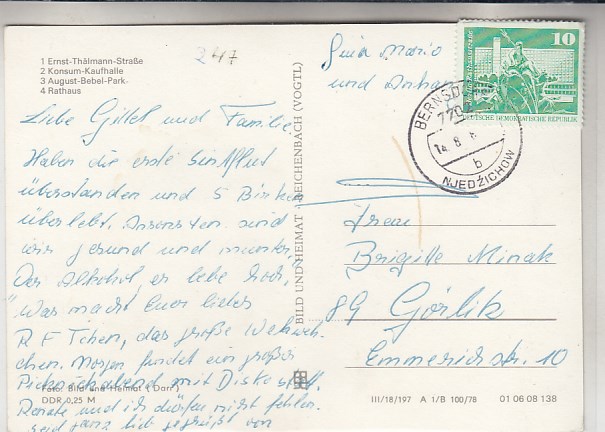 1 Ernst-Thälmann-Straße
2 Konsum-Kaufhalle
3 August-Bebel-Park
4 Rathaus
247
Liebe Gittel und Familie,
Haben die erste Sintflut
überstanden und 5 Birken
überlebt. Ansonsten sind
wir gesund und munter.
Der Alkohol, er lebe hoch,
"Was macht Euer liebes
R F Tchen, das große Wehweh-
chen. Morgen findet ein großer
Picknickabend mit Disko statt,
Renate und ich dürfen nicht fehlen.
seid ganz lieb gegrüßt von
Foto: Bild und Heimat (Darr)
DDR 0,25 M
BILD UND HEIMAT REICHENBACH (VOGTL)
Mario
und
10
DEUTSCHE DEMOKRATISCHE REPUBLIK
BERNSD
770
14.8.
b
NJEDŹICHOW
Frau
Brigitte Minak
89 Görlitz
Emmerichstr. 10
III/18/197 A I/B 100/78 01 06 08 138